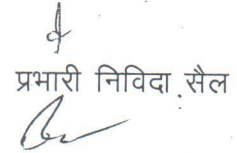 प्रभारी निविदा सैल